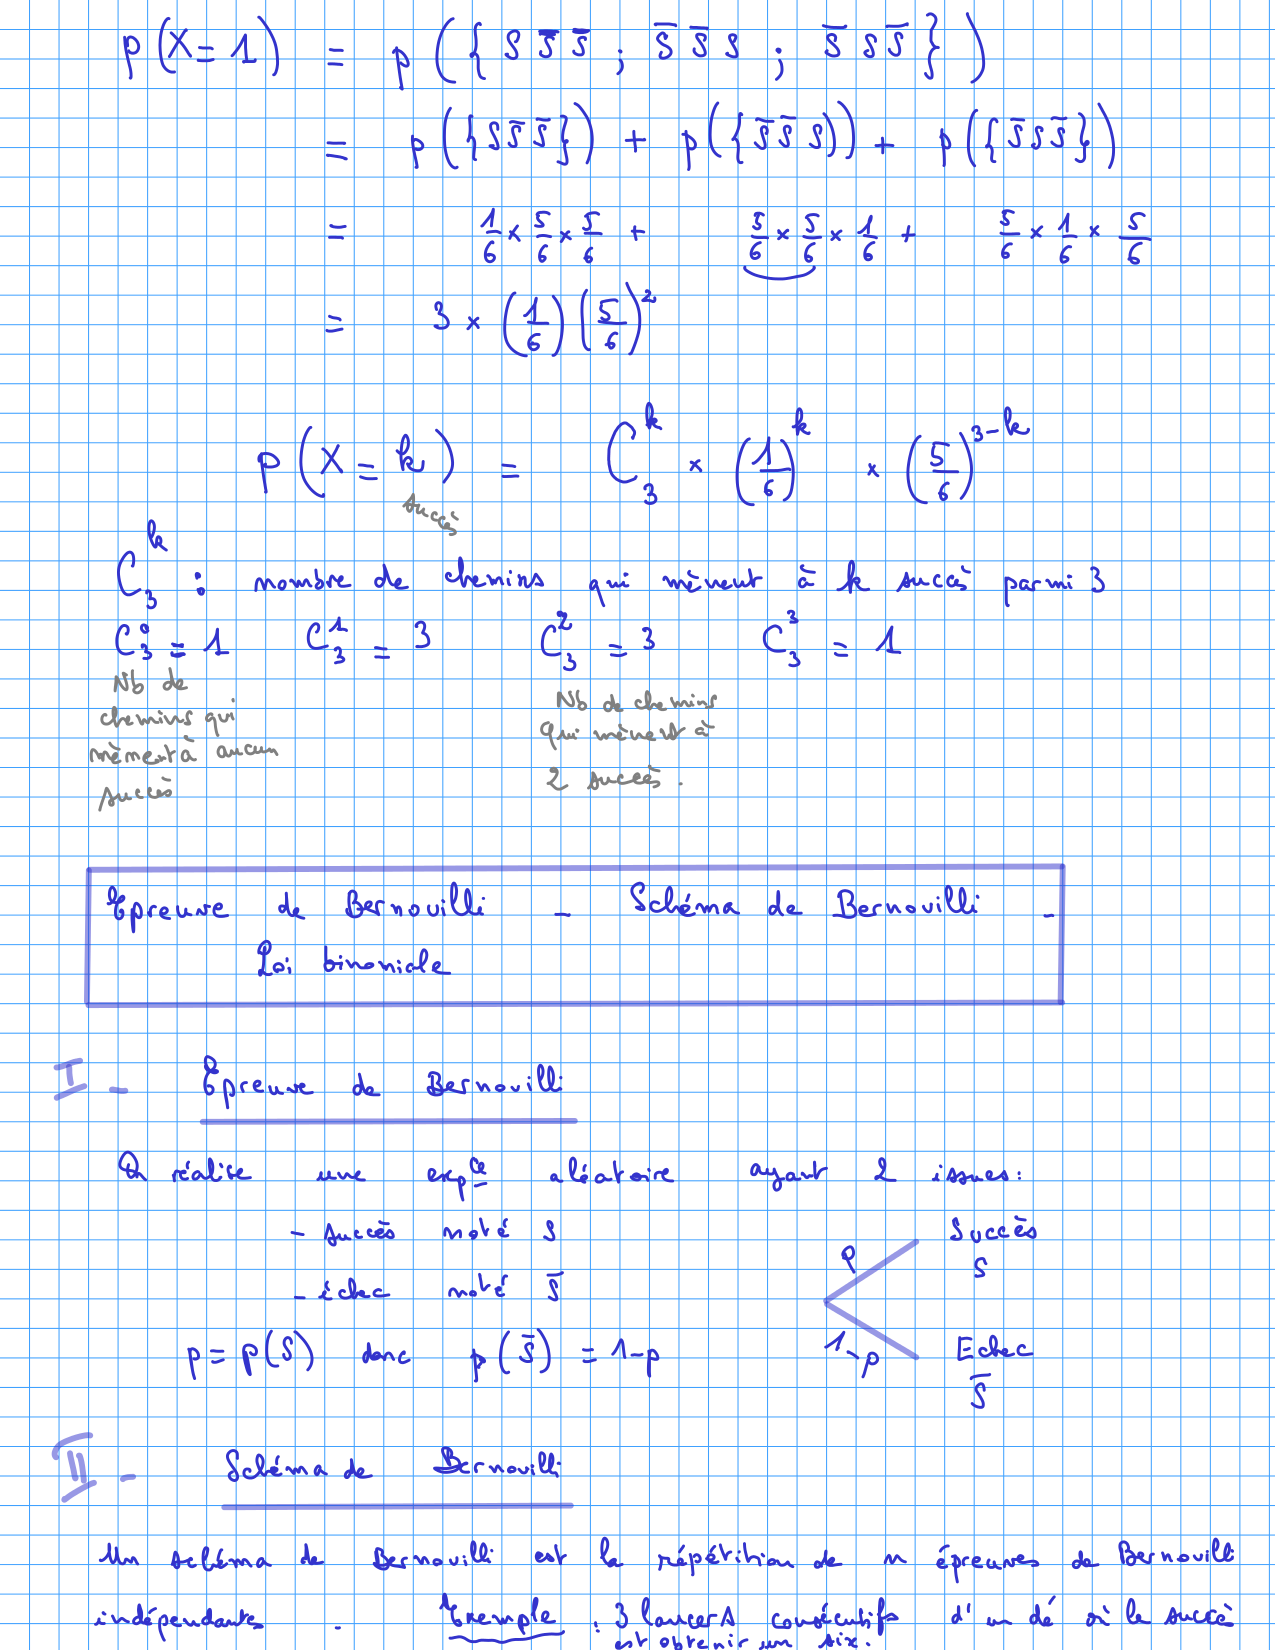 p(X=1) = p({S S̅ S̅ ; S̅ S̅ S ; S̅ S S̅})
= p({S S̅ S̅}) + p({S̅ S̅ S)) + p({S̅ S S̅})
= 1/6 × 5/6 × 5/6 + 5/6 × 5/6 × 1/6 + 5/6 × 1/6 × 5/6
= 3 × (1/6) (5/6)²
p(X = k) = C₃ᵏ × (1/6)ᵏ × (5/6)³⁻ᵏ
succès
C₃ᵏ : nombre de chemins qui mènent à k succès parmi 3
C₃⁰ = 1 C₃¹ = 3 C₃² = 3 C₃³ = 1
Nb de
chemins qui
mènent à aucun
succès
Nb de chemins
qui mènent à
2 succès.
Epreuve de Bernouilli - Schéma de Bernouilli -
Loi binomiale
I - Epreuve de Bernouilli
On réalise une expᶜᵉ aléatoire ayant 2 issues:
- succès noté S
- échec noté S̅
p = p(S) donc p(S̅) = 1-p
p Succès
S
1-p Echec
S̅
II - Schéma de Bernouilli
Un schéma de Bernouilli est la répétition de n épreuves de Bernouilli
indépendantes. Exemple : 3 lancers consécutifs d'un dé où le succès
est obtenir un six.